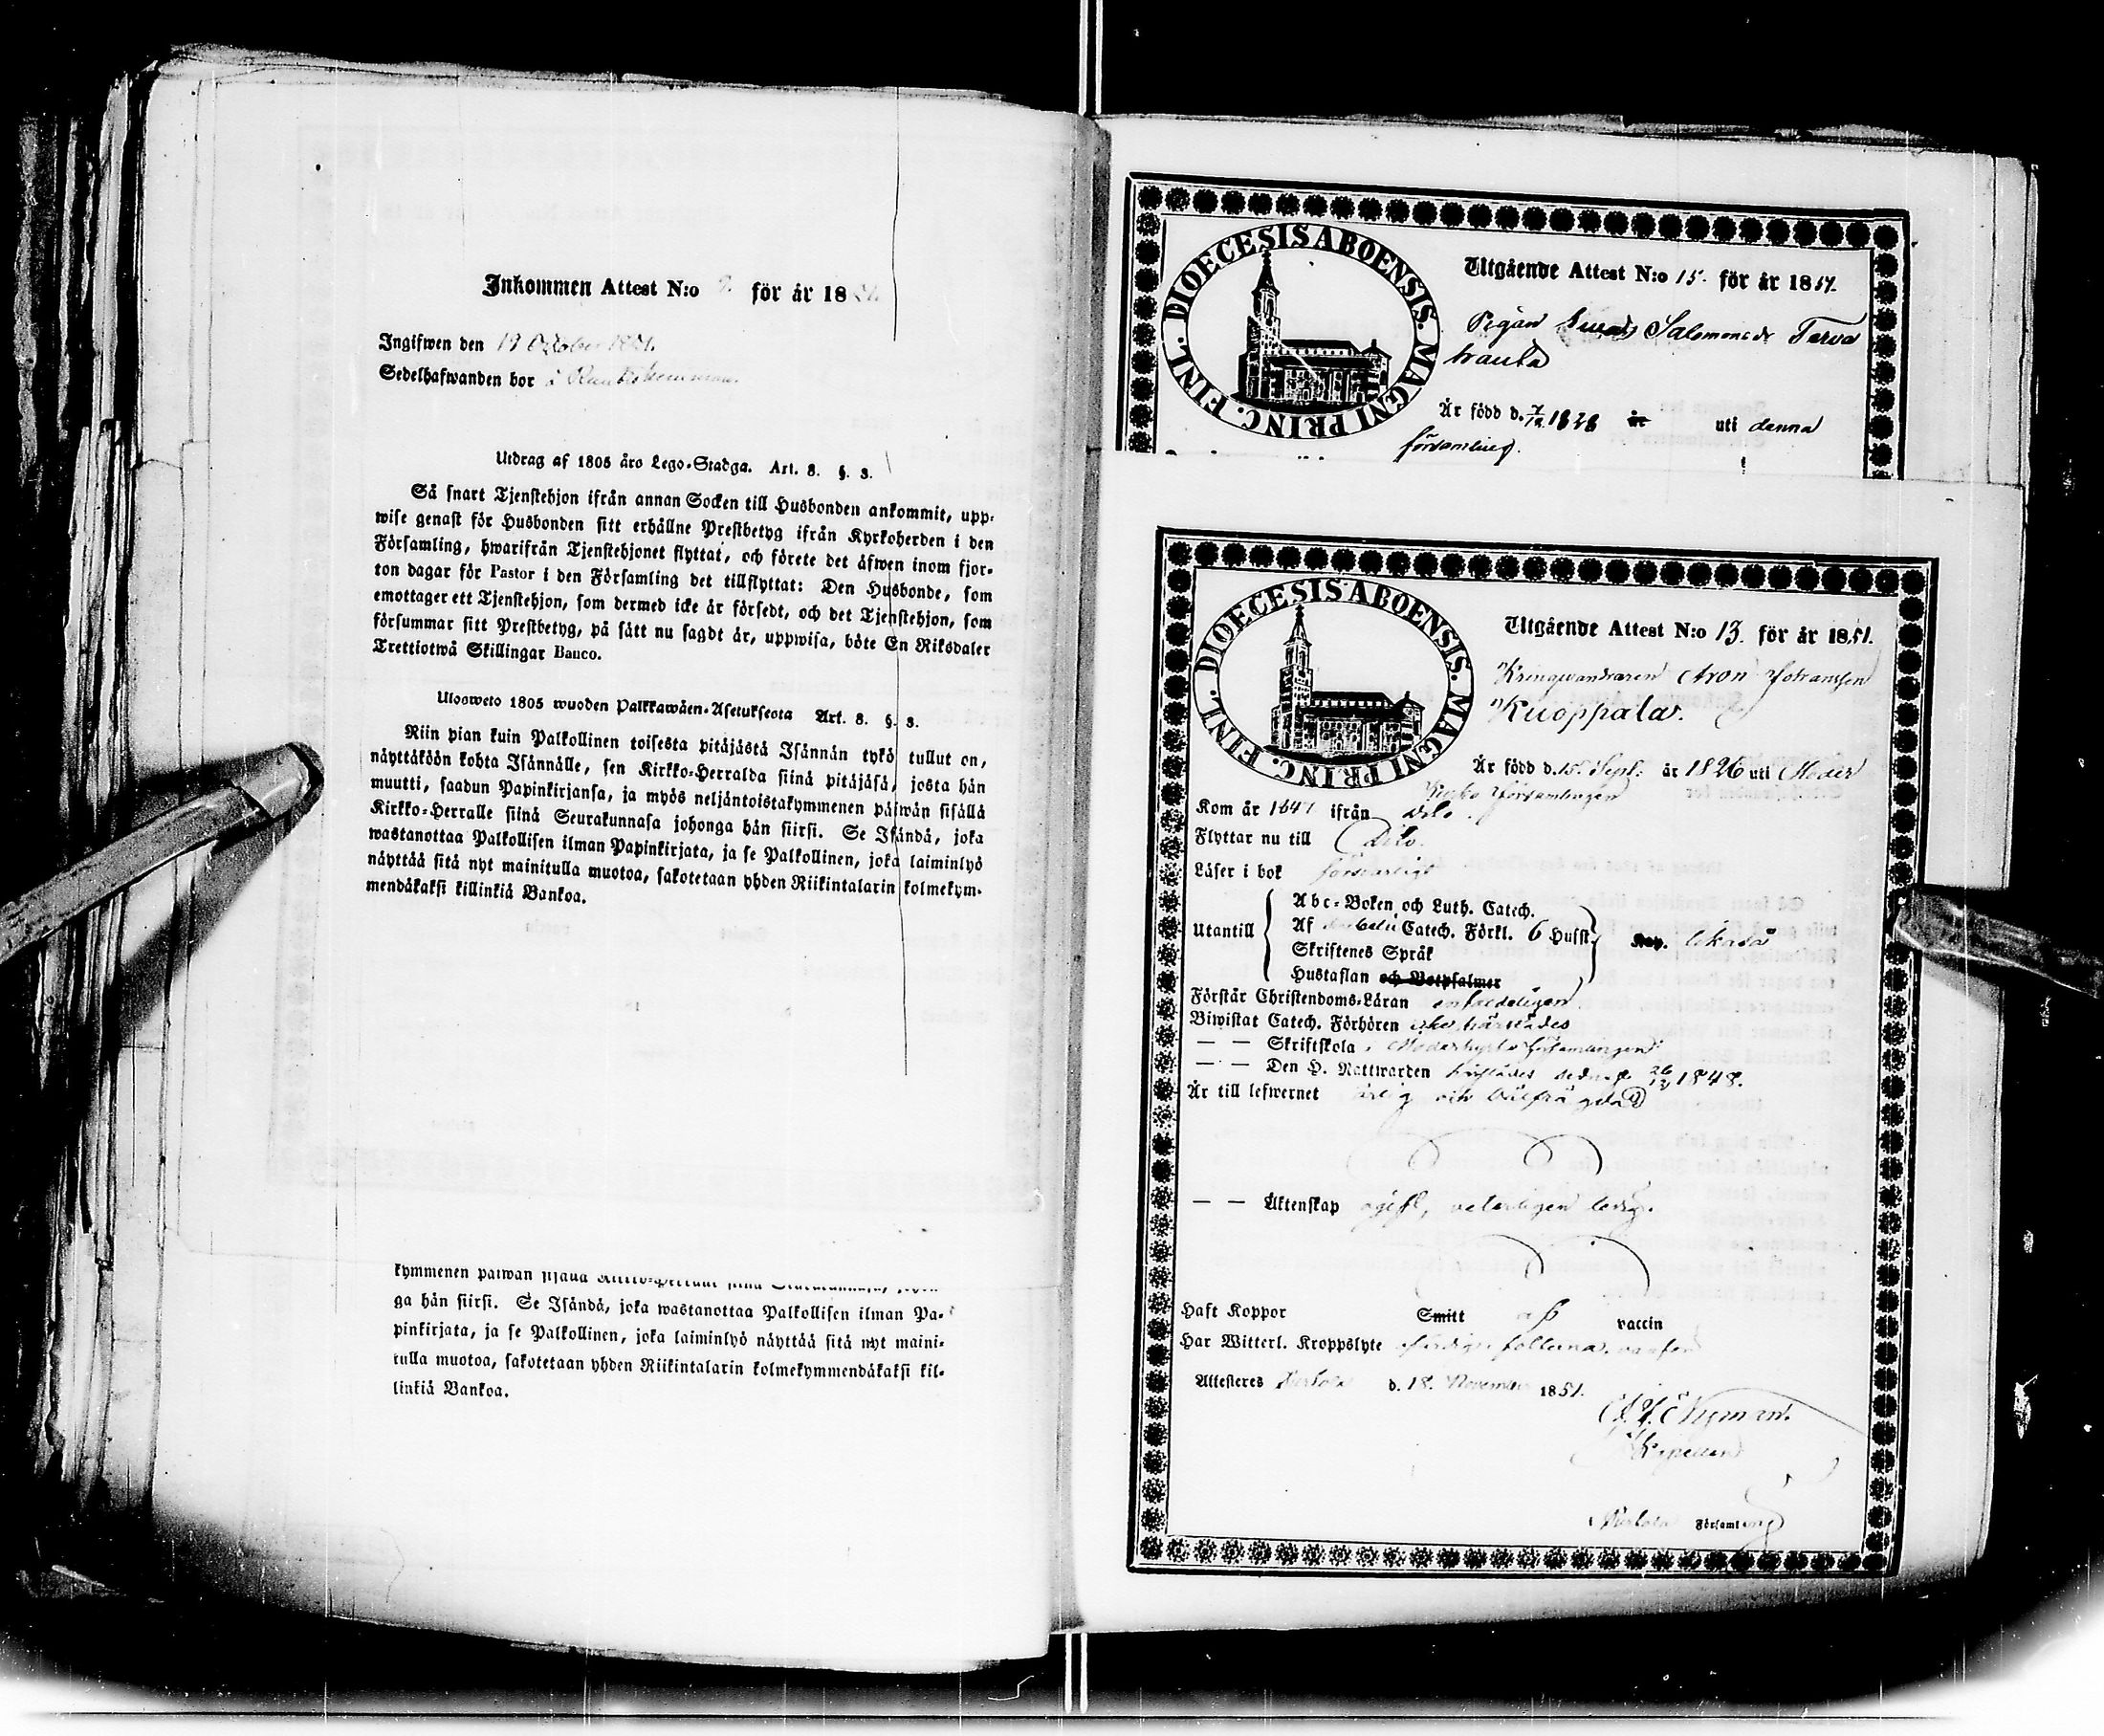 Inkommen Attest N:o 2. för år 1851.
Ingifwen den 19 October 1851.
Sedelhafwanden bor å
Utdrag af 1805 års Lego-Stadga. Art. 8. §. 3.
Så snart Tjenstehjon ifrån annan Socken till Husbonden ankommit, upp-
wise genast för Husbonden sitt erhållne Prestbetyg ifrån Kyrkoherden i den
Församling, hwarifrån Tjenstehjonet flyttat, och förete det äfwen inom fjor-
ton dagar för Pastor i den Församling det tillflyttat: Den Husbonde, som
emottager ett Tjenstehjon, som dermed icke är försedt, och det Tjenstehjon, som
försummar sitt Prestbetyg, på sätt nu sagdt är, uppwisa, böte En Riksdaler
Trettiotwå Skillingar Banco.
Ulosweto 1805 wuoden Palkkawäen-Asetuksesta Art. 8. §. 3.
Niin pian kuin Palkollinen toisesta pitäjästä Isännän tykö tullut on,
näyttäköön kohta Isännälle, sen Kirkko-Herralda siinä pitäjäsä, josta hän
muutti, saadun Papinkirjansa, ja myös neljäntoistakymmenen päiwän sisällä
Kirkko-Herralle siinä Seurakunnasa johonga hän siirsi. Se Isändä, joka
wastanottaa Palkollisen ilman Papinkirjata, ja se Palkollinen, joka laiminlyö
näyttää sitä nyt mainitulla muotoa, sakotetaan yhden Riikintalarin kolmekym-
mendäkaksi killinkiä Bankoa.
kymmenen päiwän sisällä Kirkko-Herralle siinä Seurakunnasa, john-
ga hän siirsi. Se Isändä, joka wastanottaa Palkollisen ilman Pa-
pinkirjata, ja se Palkollinen, joka laiminlyö näyttää sitä nyt maini-
tulla muotoa, sakotetaan yhden Riikintalarin kolmekymmendäkaksi kil-
linkiä Bankoa.
DIOECESIS ABOENSIS. MAGNI PRINC. FINL.
Utgående Attest N:o 15. för år 1851.
Pigan Salomonsdr Tarva
Är född d. 1828 år uti denna
församling.
DIOECESIS ABOENSIS. MAGNI PRINC. FINL.
Utgående Attest N:o 13. för år 1851.
Kringvandraren Aron Johansson
Kuoppala.
Är född d. 15. Sept. år 1826 uti Moder
Kyrko Församlingen
Kom år 1847 ifrån Dito.
Flyttar nu till Dito.
Läser i bok försvarligt
Utantill
Abc-Boken och Luth. Catech.
Af Catech. Förkl. 6 Hufst.
Skriftenes Språk
Hustaflan och Botpsalmer
Förstår Christendoms-Läran
Biwistat Catech. Förhören härstädes
— — Skriftskola i Moderkyrko församlingen
— — Den H. Nattwarden sednast 26/12 1848.
Är till lefwernet ärlig och välfrägdad
— — Äktenskap ogift, veterligen ledig.
Haft Koppor Smitt af vaccin
Har Witterl. Kroppslyte
Attesteres d. 18. November 1851.
Nyman.
Kapellan
Församling